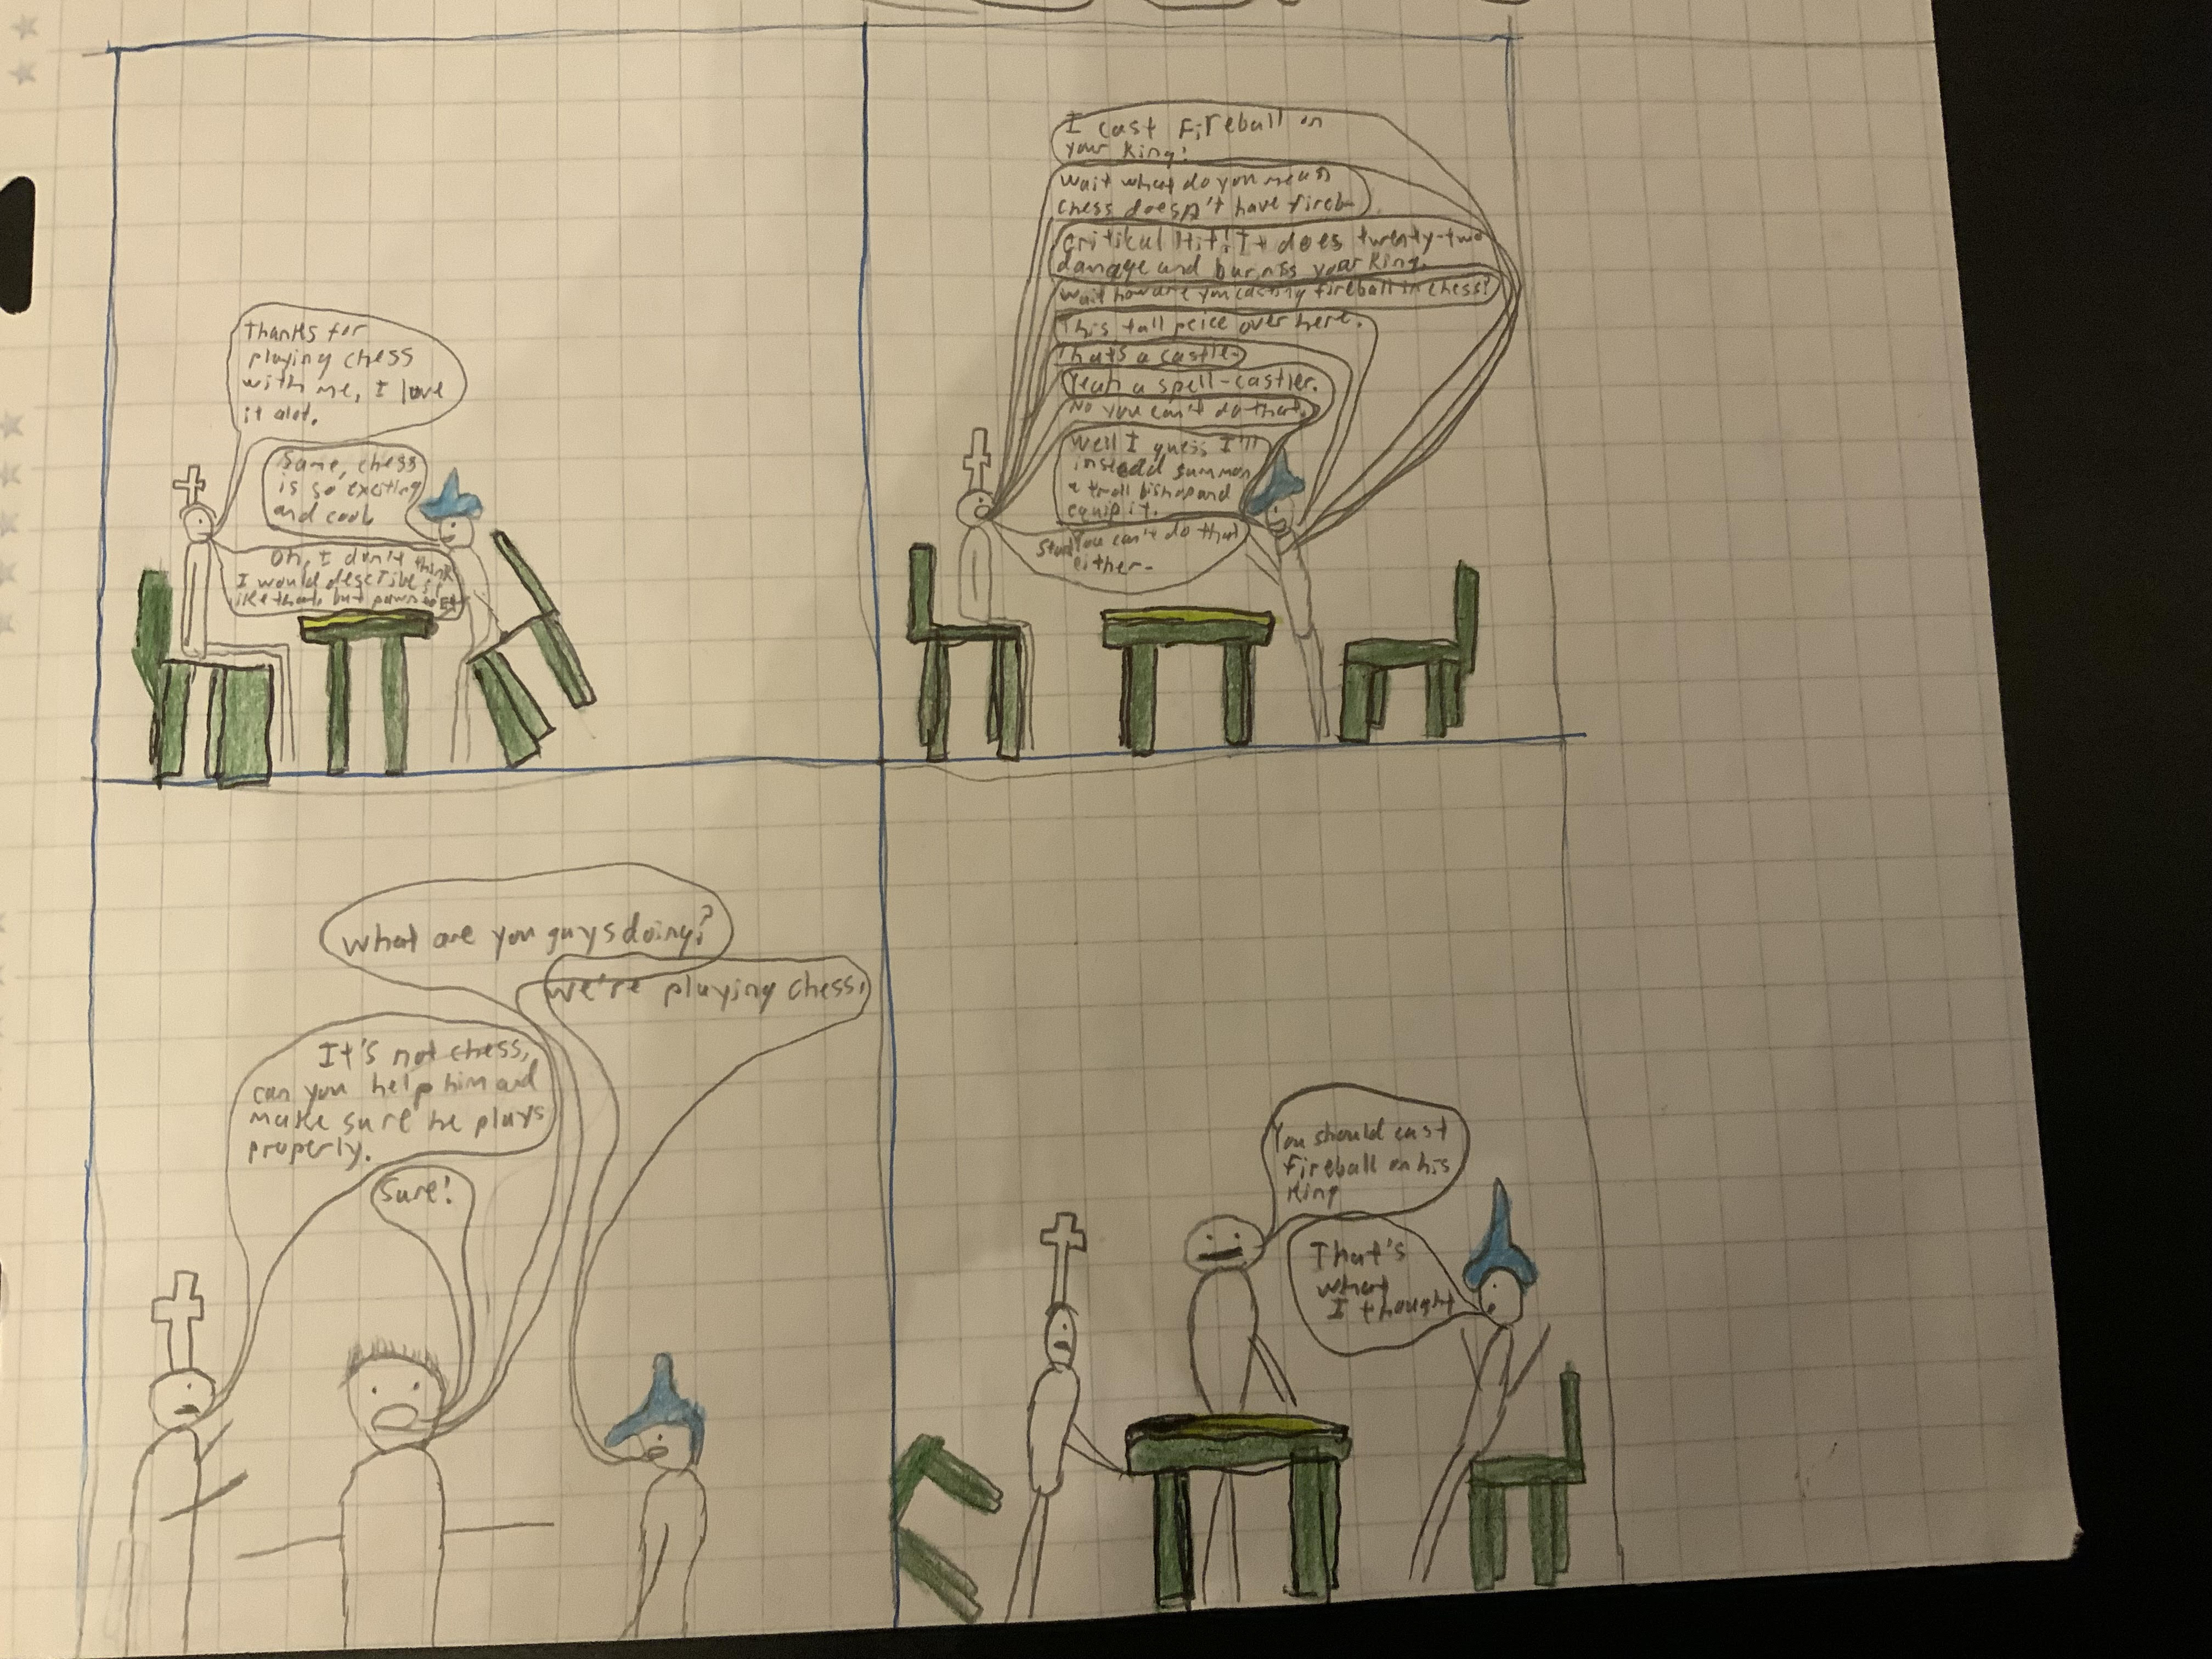 Thanks for
playing chess
with me, I love
it alot.
Same, chess
is so exciting
and cool.
Oh, I don't think
I would describe it
like that, but pawn to
I cast Fireball on
your King!
Wait what do you mean
chess doesn't have fireb-
Critikul Hit! It does twenty-two
damage and burnss your King.
Wait how are you casting fireball in chess?
This tall peice over here.
That's a castle-
Yeah a spell-castler.
No you can't do that.
Well I guess I'll
instead summon
a troll bishop and
equip it.
You can't do that
either-
What are you guys doing?
We're playing chess.
It's not chess,
can you help him and
make sure he plays
properly.
Sure!
You should cast
fireball on his
King
That's
what
I thought